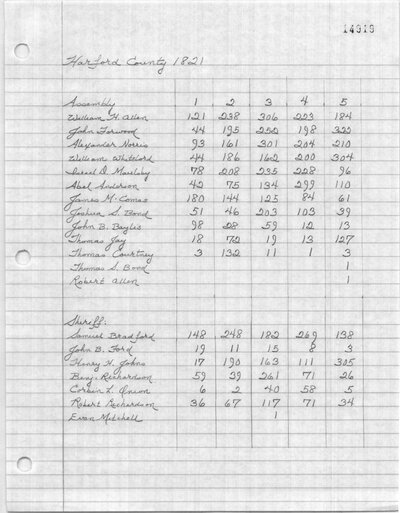 14919
Harford County 1821
Assembly 1 2 3 4 5
William H. Allen 121 238 306 223 184
John Forwood 44 195 252 198 322
Alexander Norris 93 161 301 204 210
William Whiteford 44 186 162 200 304
Israel D. Maulsby 78 208 235 228 96
Abel Anderson 42 75 134 299 110
James McComas 180 144 125 84 61
Joshua S. Bond 51 46 203 103 39
John B. Bayles 98 28 59 12 13
Thomas Jay 18 72 19 13 127
Thomas Courtney 3 132 11 1 3
Thomas S. Bond 1
Robert Allen 1
Sheriff:
Samuel Bradford 148 248 182 269 138
John B. Ford 19 11 15 8 3
Henry H. Johns 17 190 163 111 305
Benj. Richardson 59 39 261 71 26
Corbin L. Onion 6 2 40 58 5
Robert Richardson 36 67 117 71 34
Evan Mitchell 1